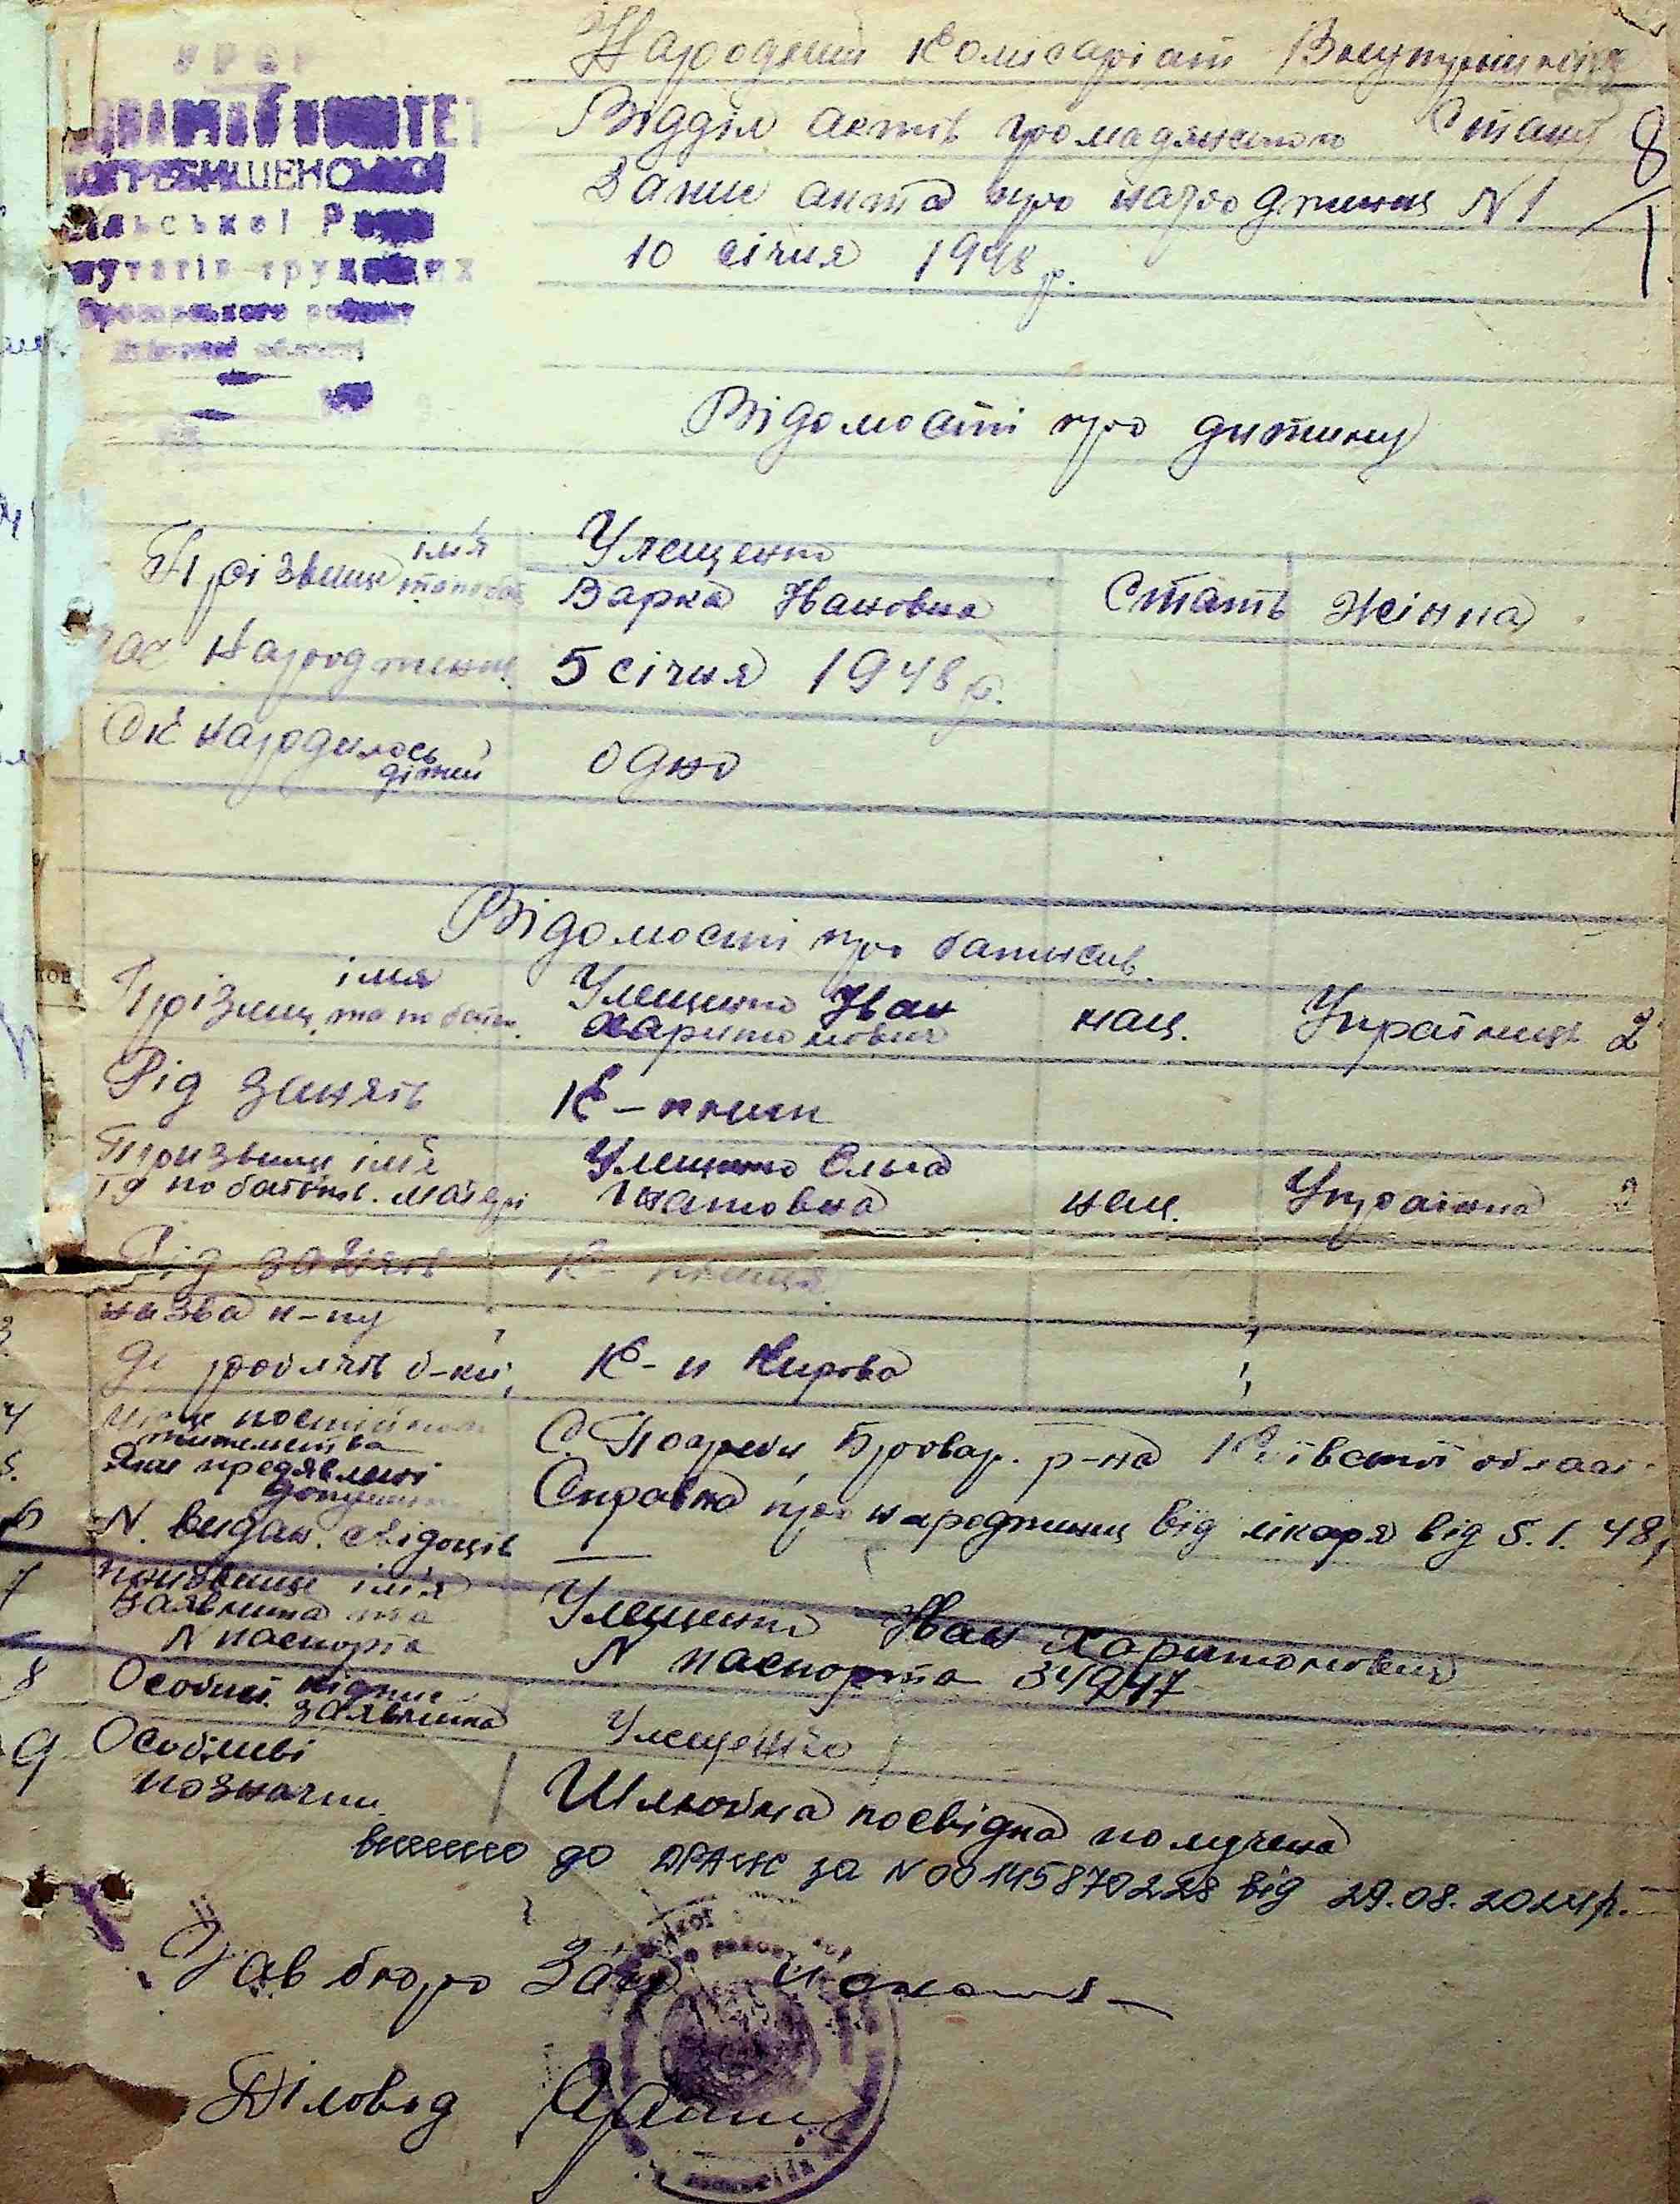 УРСР
ПОГРЕБИЩЕНСЬКОЇ
сільської Ради
депутатів трудящих
Броварського району
Київської області
Народний Комісаріат Внутрішніх
Відділ актів громадянського Стану
Запис акта про народження N 1
8/1
10 січня 1948 р.
Відомості про дитину
Прізвище імя та побат Улещенко Варка Ивановна Стать Жінка
час народження 5 січня 1948 р.
Ск народилось дітей одно
Відомості про батьків.
Прізвищ імя та по батьк. Улещенко Иван Харитонович нац. Українец 2
Рід занять К-ник
Призвище імя та по батьков. матері Улещенко Ольга Игнатовна нац. Українка 2
Рід занять К-
назва к-пу
де роблять б-ки К-п Кирова
4 місце постійного жительства С. Погреби Бровар. р-на Київської област
5. Яки предявлені документи Справка про народження від лікаря від 5.1.48р
6 N видан. свідоцтв —
7 призвище імя заявника та N паспорта Улещенко Иван Харитонович
N паспорта 341947
8 Особист. підпис заявника Улещенко
9 Особливі позначки Шлюбна посвідка получена
внесено до ДРАЦС за N 00145870228 від 29.08.2024р.
Зав бюро Загс
Діловод